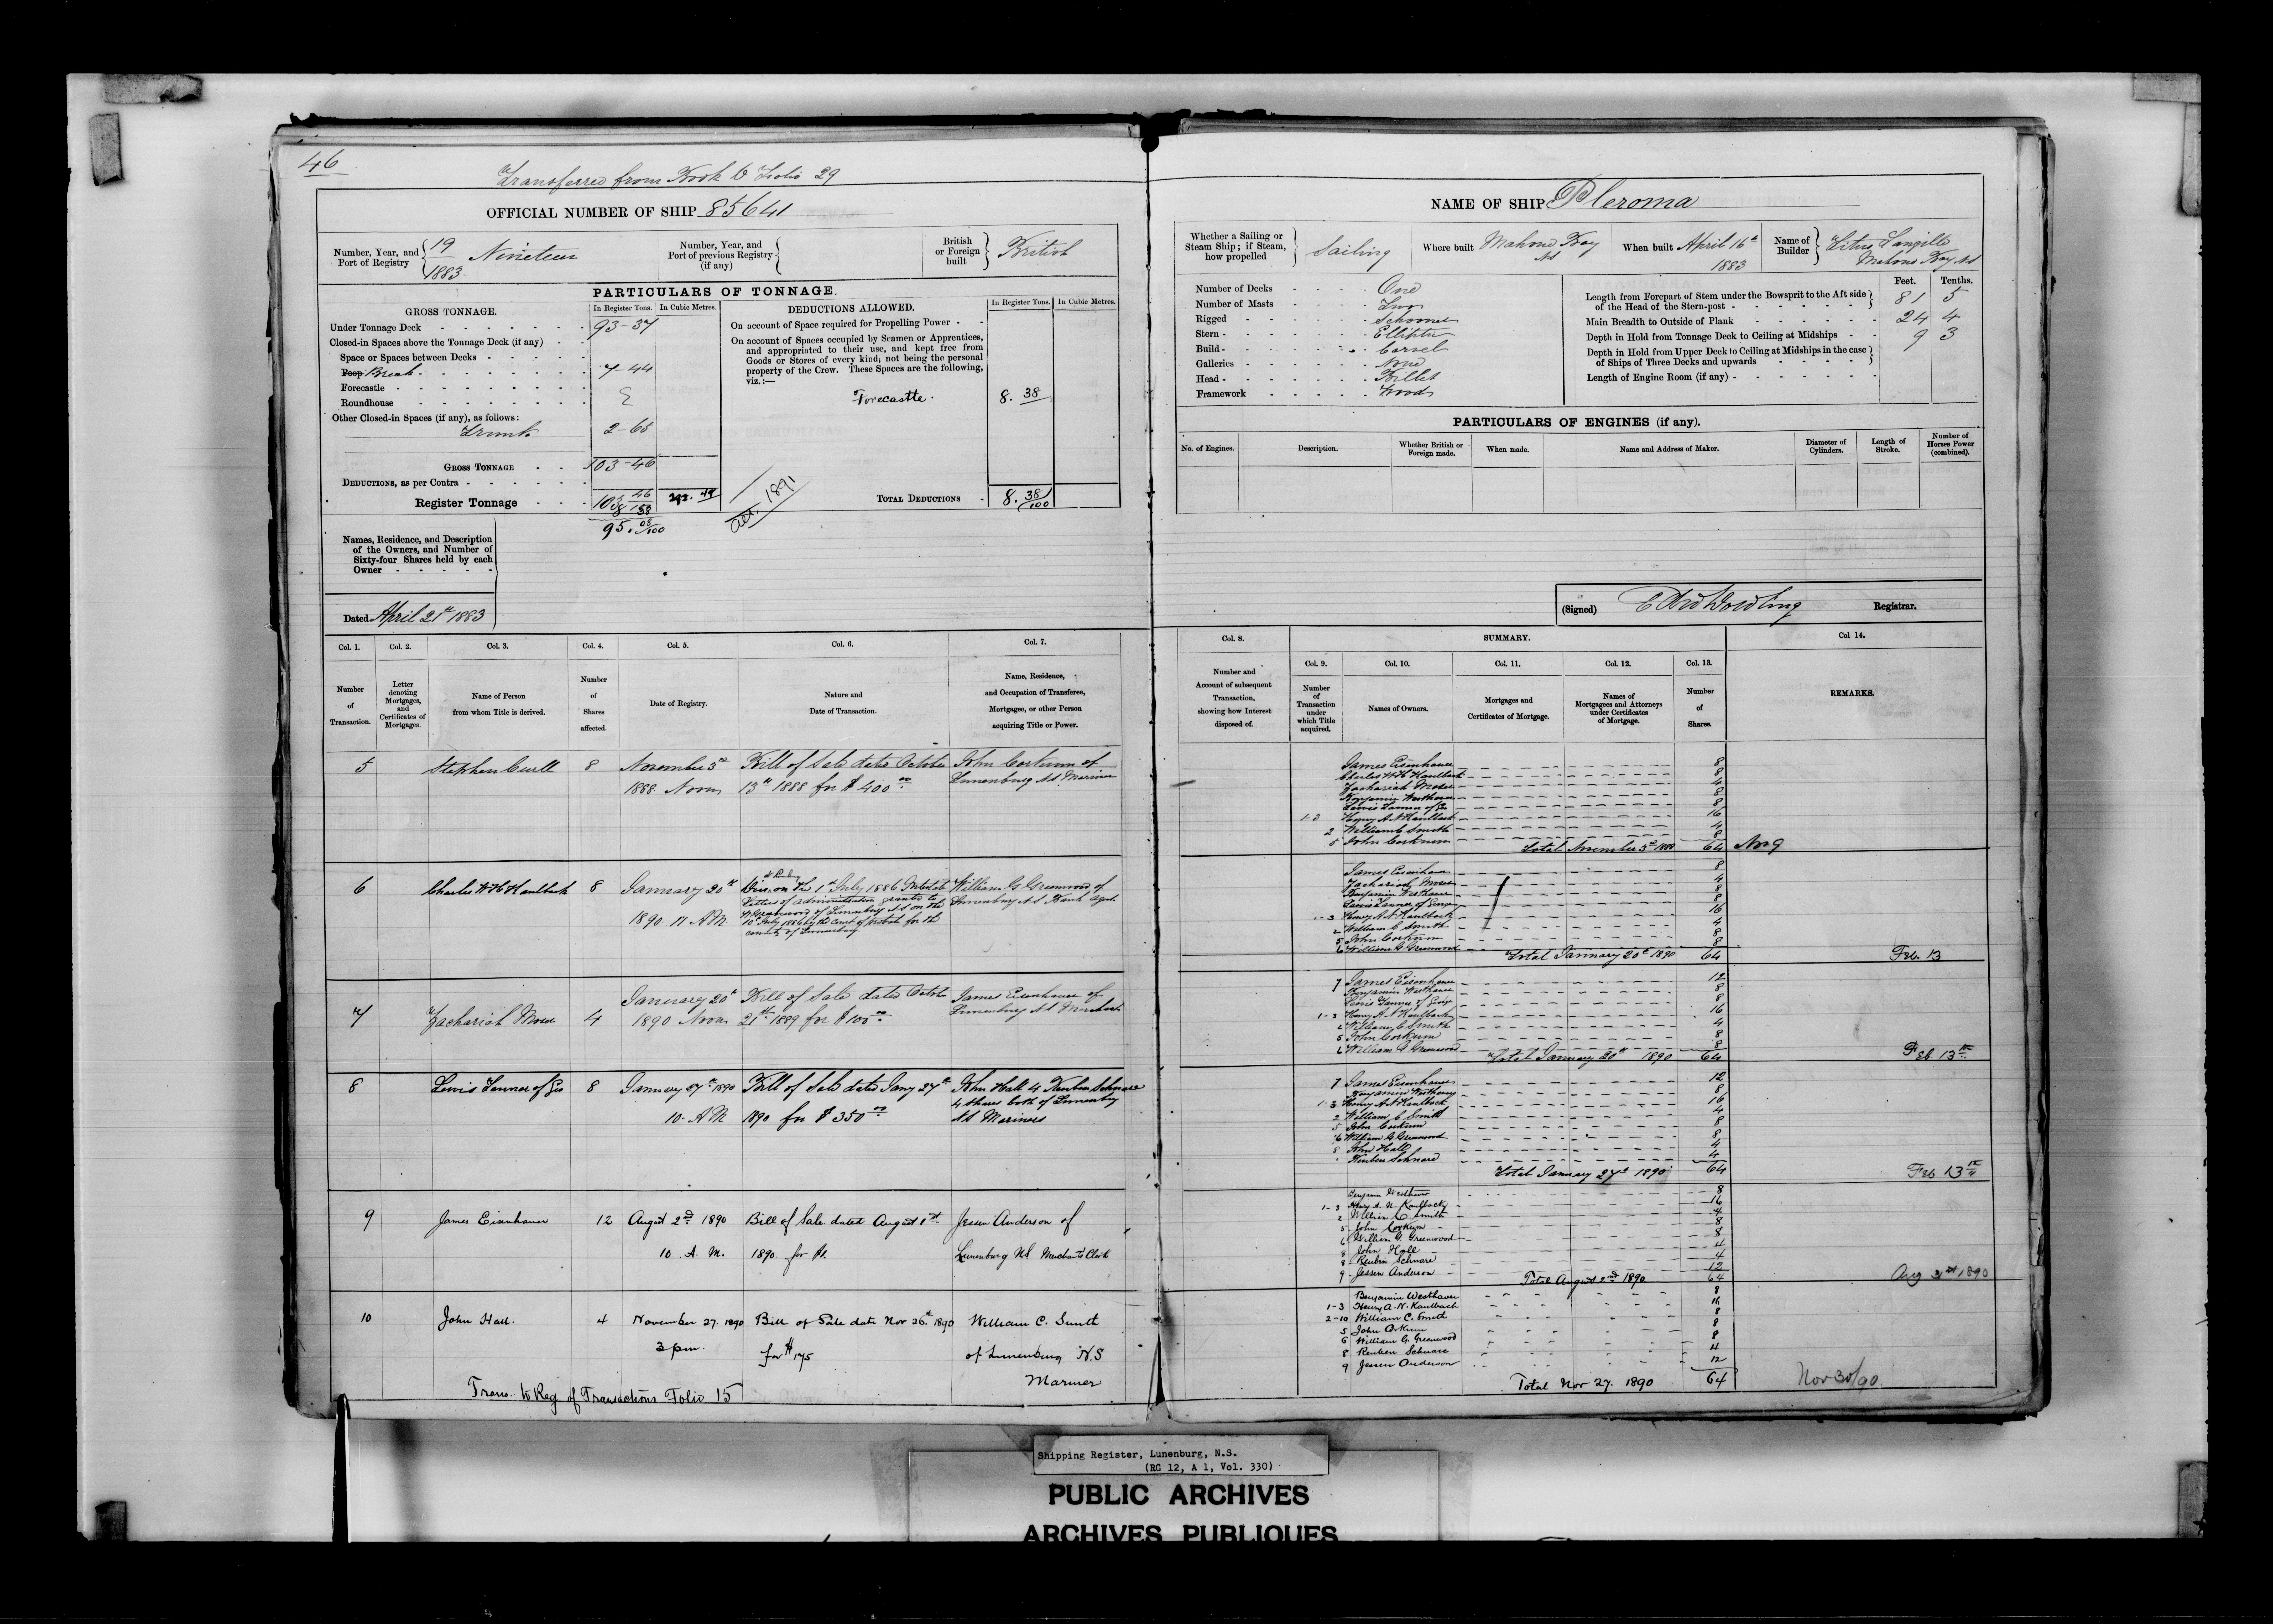 46
Transferred from Book D Folio 29
OFFICIAL NUMBER OF SHIP 85641
Number, Year, and Port of Registry { 19/1883 Nineteen
Number, Year, and Port of previous Registry (if any) {
British or Foreign built } British
PARTICULARS OF TONNAGE.
GROSS TONNAGE.
In Register Tons. In Cubic Metres.
Under Tonnage Deck 93-37
Closed-in Spaces above the Tonnage Deck (if any)
Space or Spaces between Decks
Poop Break 7-44
Forecastle
Roundhouse
Other Closed-in Spaces (if any), as follows:
Trunk 2-65
GROSS TONNAGE 103-46
DEDUCTIONS, as per Contra
Register Tonnage 103 46
8 38
95. 08/100
DEDUCTIONS ALLOWED.
In Register Tons. In Cubic Metres.
On account of Space required for Propelling Power
On account of Spaces occupied by Seamen or Apprentices,
and appropriated to their use, and kept free from
Goods or Stores of every kind, not being the personal
property of the Crew. These Spaces are the following,
viz.:—
Forecastle. 8. 38
act. 1891
TOTAL DEDUCTIONS 8. 38/100
Names, Residence, and Description
of the Owners, and Number of
Sixty-four Shares held by each
Owner
Dated April 21st 1883
Col. 1. Col. 2. Col. 3. Col. 4. Col. 5. Col. 6. Col. 7.
Number of Transaction.
Letter denoting Mortgages, and Certificates of Mortgages.
Name of Person from whom Title is derived.
Number of Shares affected.
Date of Registry.
Nature and Date of Transaction.
Name, Residence, and Occupation of Transferee, Mortgagee, or other Person acquiring Title or Power.
5 Stephen 8 November 3rd Bill of Sale dated October John Corkum of
1888 Noon 13th 1888 for $400.00 Lunenburg NS Mariner
6 Charles W H Kaulbach 8 January 20th on the 1st July 1886 Intestate William G Greenwood of
Letters of administration granted to Lunenburg NS Bank Agent
1890 11 AM W Greenwood of Lunenburg NS on the
10th July 1886 by the Court of Probate for the
county of Lunenburg
January 20th Bill of Sale dated October James Eisenhauer of
7 Zachariah Moser 4 1890 Noon 21st 1889 for $100.00 Lunenburg NS Merchant
8 Lewis Tanner of Geo 8 January 27th 1890 Bill of Sale dated Jany 27th John Hall 4 Reuben Schnare
10 AM 1890 for $350.00 4 shares both of Lunenburg
NS Mariners
9 James Eisenhauer 12 August 2nd 1890 Bill of Sale dated August 1st Jessen Anderson of
10 A.M. 1890. for $1. Lunenburg NS Merchants Clerk
10 John Hall. 4 November 27. 1890 Bill of Sale date Nov 26th 1890 William C. Smith
3 pm. for $175 of Lunenburg N.S
Mariner
Trans. to Reg of Transactions Folio 15
NAME OF SHIP Pleroma
Whether a Sailing or Steam Ship; if Steam, how propelled } Sailing
Where built Mahone Bay NS
When built April 16th 1883
Name of Builder } Titus Langille Mahone Bay NS
Number of Decks One
Number of Masts Two
Rigged Schooner
Stern Elliptic
Build Carvel
Galleries None
Head Billet
Framework Wood
Feet. Tenths.
Length from Forepart of Stem under the Bowsprit to the Aft side of the Head of the Stern-post 81 5
Main Breadth to Outside of Plank 24 4
Depth in Hold from Tonnage Deck to Ceiling at Midships 9 3
Depth in Hold from Upper Deck to Ceiling at Midships in the case of Ships of Three Decks and upwards
Length of Engine Room (if any)
PARTICULARS OF ENGINES (if any).
No. of Engines.
Description.
Whether British or Foreign made.
When made.
Name and Address of Maker.
Diameter of Cylinders.
Length of Stroke.
Number of Horses Power (combined).
(Signed) Edw Dowling Registrar.
Col. 8. SUMMARY. Col 14.
Col. 9. Col. 10. Col. 11. Col. 12. Col. 13.
Number and Account of subsequent Transaction, showing how Interest disposed of.
Number of Transaction under which Title acquired.
Names of Owners.
Mortgages and Certificates of Mortgage.
Names of Mortgagees and Attorneys under Certificates of Mortgage.
Number of Shares.
REMARKS.
James Eisenhauer 8
Charles W H Kaulbach 8
Zachariah Moser 4
Benjamin Westhaver 8
Lewis Tanner of G 8
1-3 Henry A N Kaulbach 16
2 William C Smith 4
5 John Corkum 8
Total November 3rd 1888 64 Nov 9
James Eisenhauer 8
Zachariah Moser 4
Benjamin Westhaver 8
Lewis Tanner of George 8
1-3 Henry A N Kaulbach 16
2 William C Smith 4
5 John Corkum 8
6 William G Greenwood 8
Total January 20th 1890 64 Feb. 13
7 James Eisenhauer 12
Benjamin Westhaver 8
Lewis Tanner of George 8
1-3 Henry A N Kaulbach 16
2 William C Smith 4
5 John Corkum 8
6 William G Greenwood 8
Total January 20th 1890 64 Feb 13th
7 James Eisenhauer 12
Benjamin Westhaver 8
1-3 Henry A N Kaulbach 16
2 William C Smith 4
5 John Corkum 8
6 William G Greenwood 8
8 John Hall 4
Reuben Schnare 4
Total January 27th 1890 64 Feb 13th
Benjamin Westhaver 8
1-3 Henry A. N. Kaulbach 16
2 William C Smith 4
5 John Corkum 8
6 William G. Greenwood 8
8 John Hall 4
8 Reuben Schnare 4
9 Jessen Anderson 12
Total August 2nd 1890 64 Aug 1890
Benjamin Westhaver 8
1-3 Henry A. N. Kaulbach 16
2-10 William C. Smith 8
5 John Corkum 8
6 William G Greenwood 8
8 Reuben Schnare 4
9 Jessen Anderson 12
Total Nov 27. 1890 64 Nov 30/90
Shipping Register, Lunenburg, N.S.
(RG 12, A 1, Vol. 330)
PUBLIC ARCHIVES
ARCHIVES PUBLIQUES